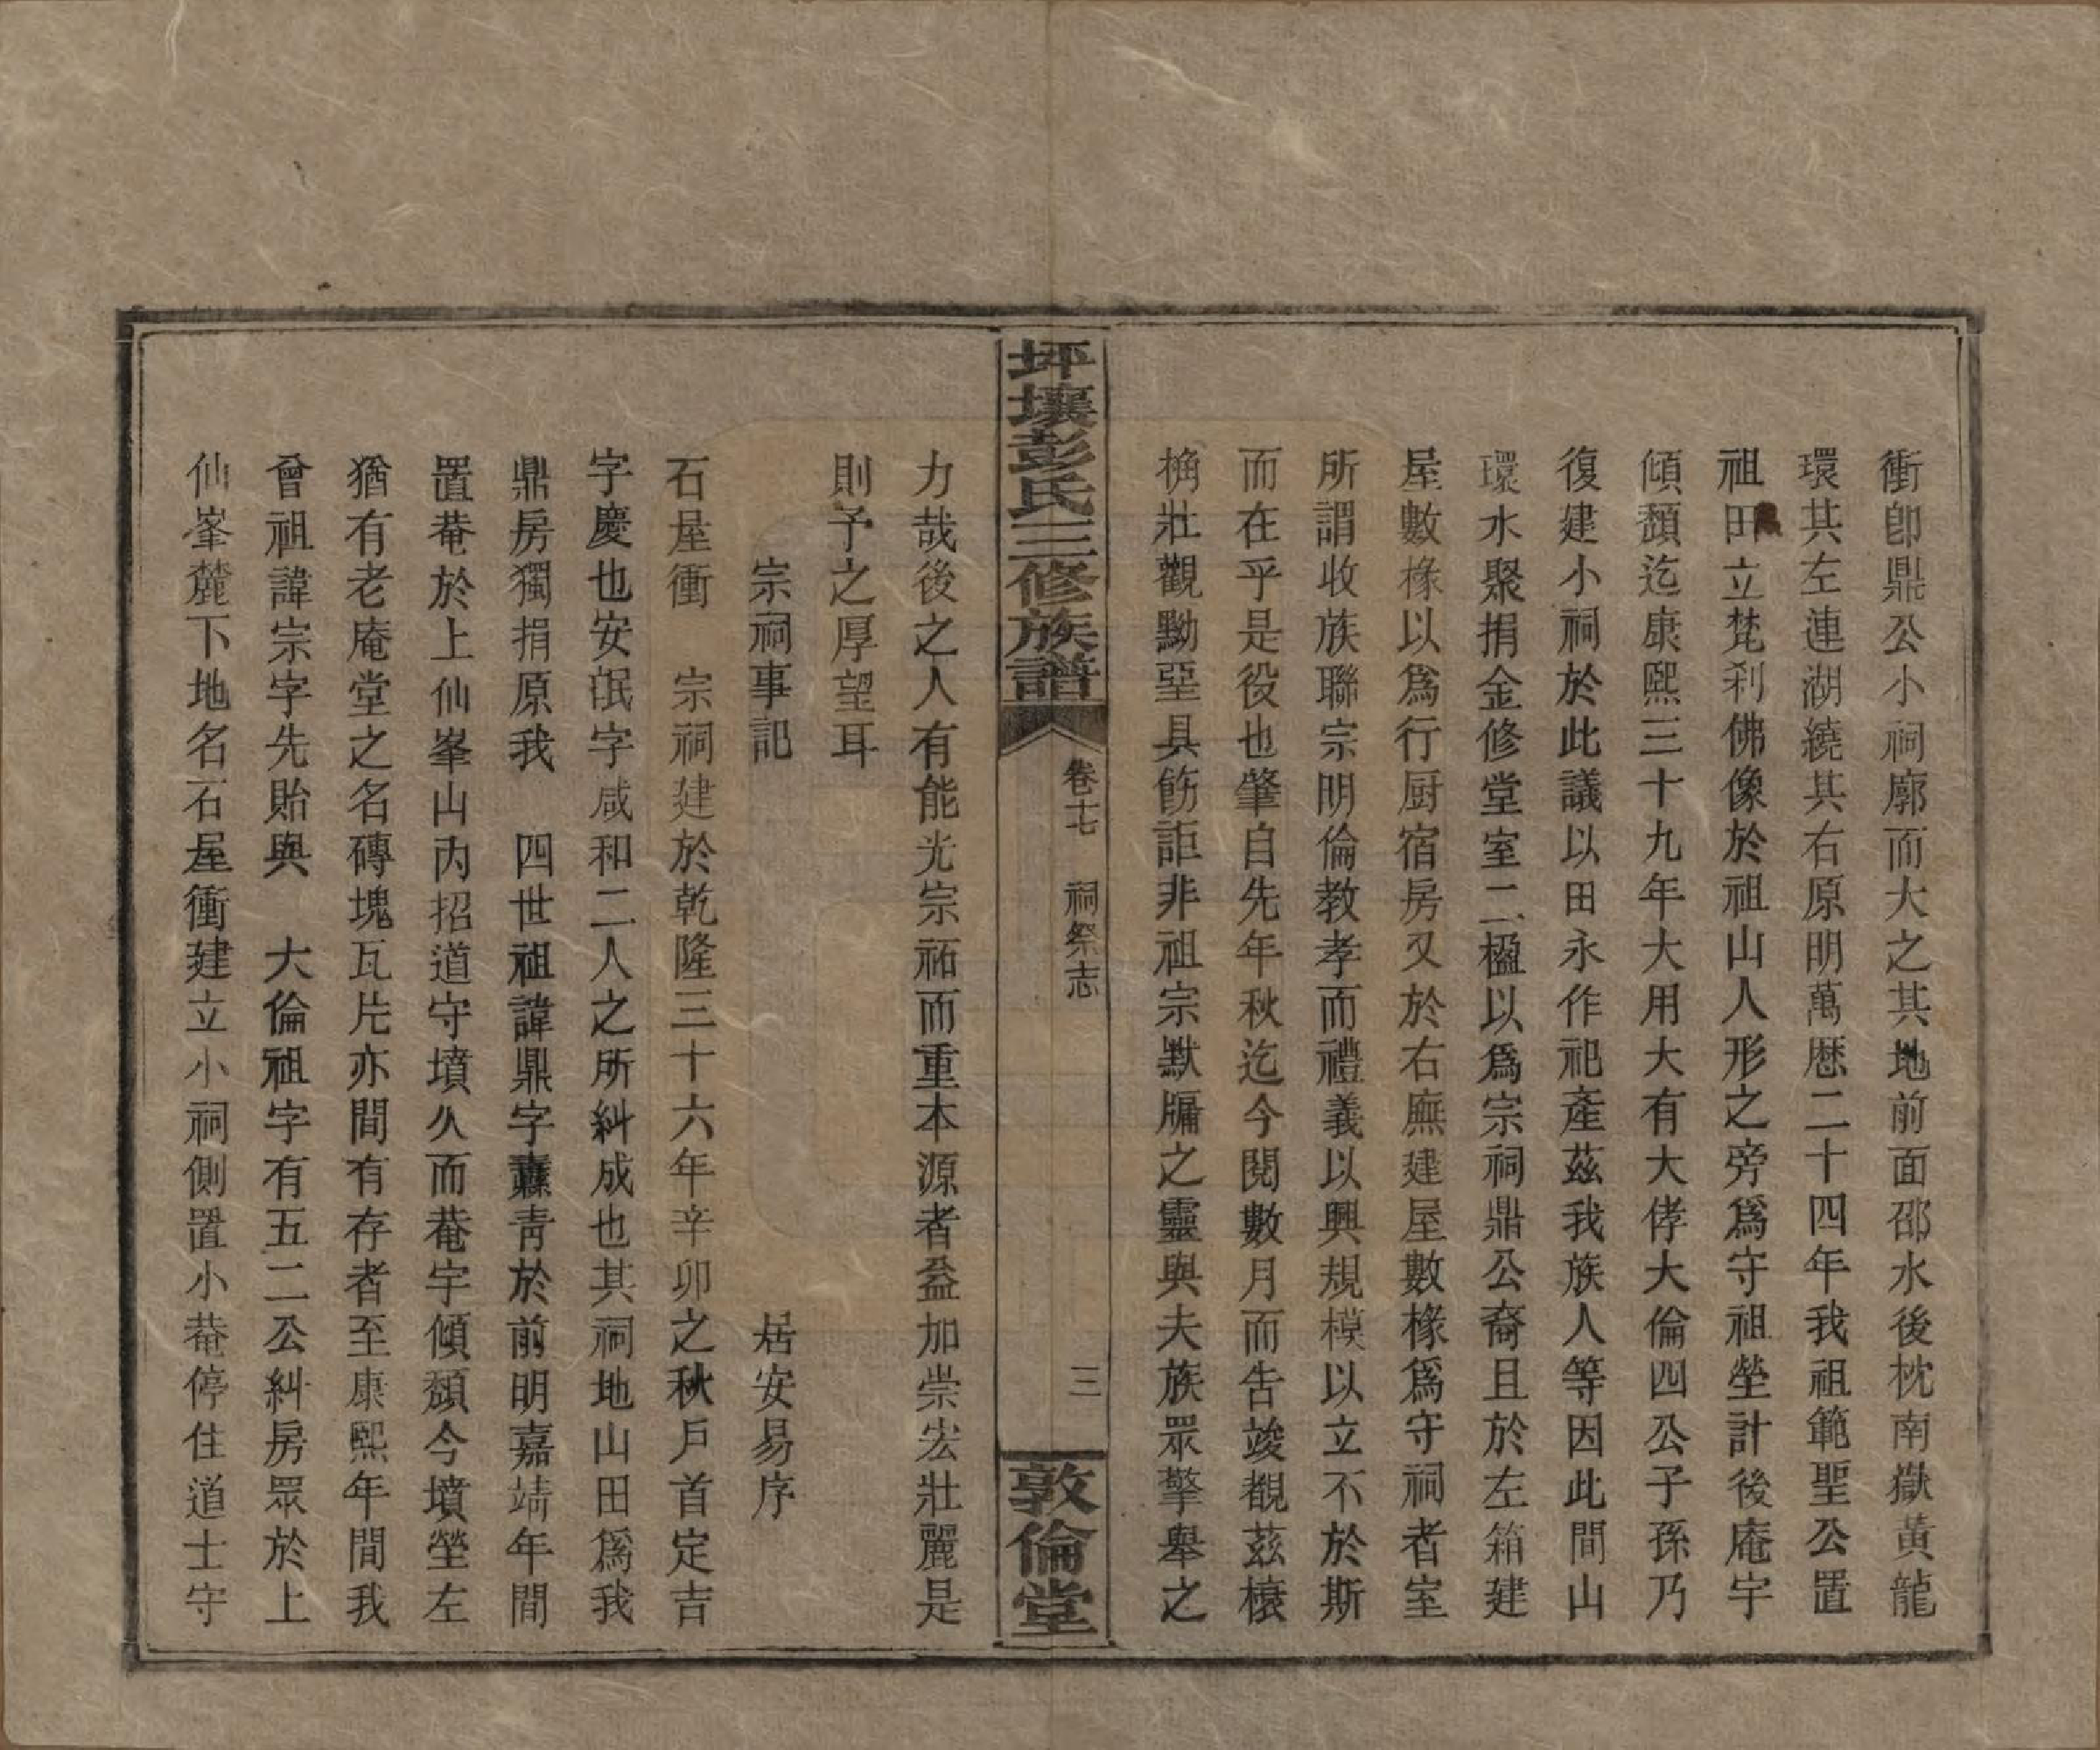 衝卽鼎公小祠廓而大之其地前面邵水後枕南嶽黃龍
環其左連湖繞其右原明萬厯二十四年我祖範聖公置
祖田立梵刹佛像於祖山人形之旁爲守祖塋計後庵宇
傾頽迄康熙三十九年大用大有大侾大倫四公子孫乃
復建小祠於此議以田永作祀產茲我族人等因此間山
環水聚捐金修堂室二楹以爲宗祠鼎公裔且於左箱建
屋數椽以爲行厨宿房又於右廡建屋數椽爲守祠者室
所謂收族聯宗明倫教孝而禮義以興規模以立不於斯
而在乎是役也肇自先年秋迄今閱數月而告竣覩茲榱
桷壯觀黝堊具飭詎非祖宗默牖之靈與夫族眾擎舉之
坪壤彭氏三修族譜
卷十七 祠祭志
三
敦倫堂
力哉後之人有能光宗祏而重本源者益加崇宏壯麗是
則予之厚望耳
宗祠事記 居安易序
石屋衝 宗祠建於乾隆三十六年辛卯之秋戶首定吉
字慶也安泯字咸和二人之所糾成也其祠地山田爲我
鼎房獨捐原我 四世祖諱鼎字纛靑於前明嘉靖年間
置菴於上仙峯山內招道守墳久而菴宇傾頽今墳塋左
猶有老庵堂之名磚塊瓦片亦間有存者至康熙年間我
曾祖諱宗字先貽與 大倫祖字有五二公糾房眾於上
仙峯麓下地名石屋衝建立小祠側置小菴停住道士守